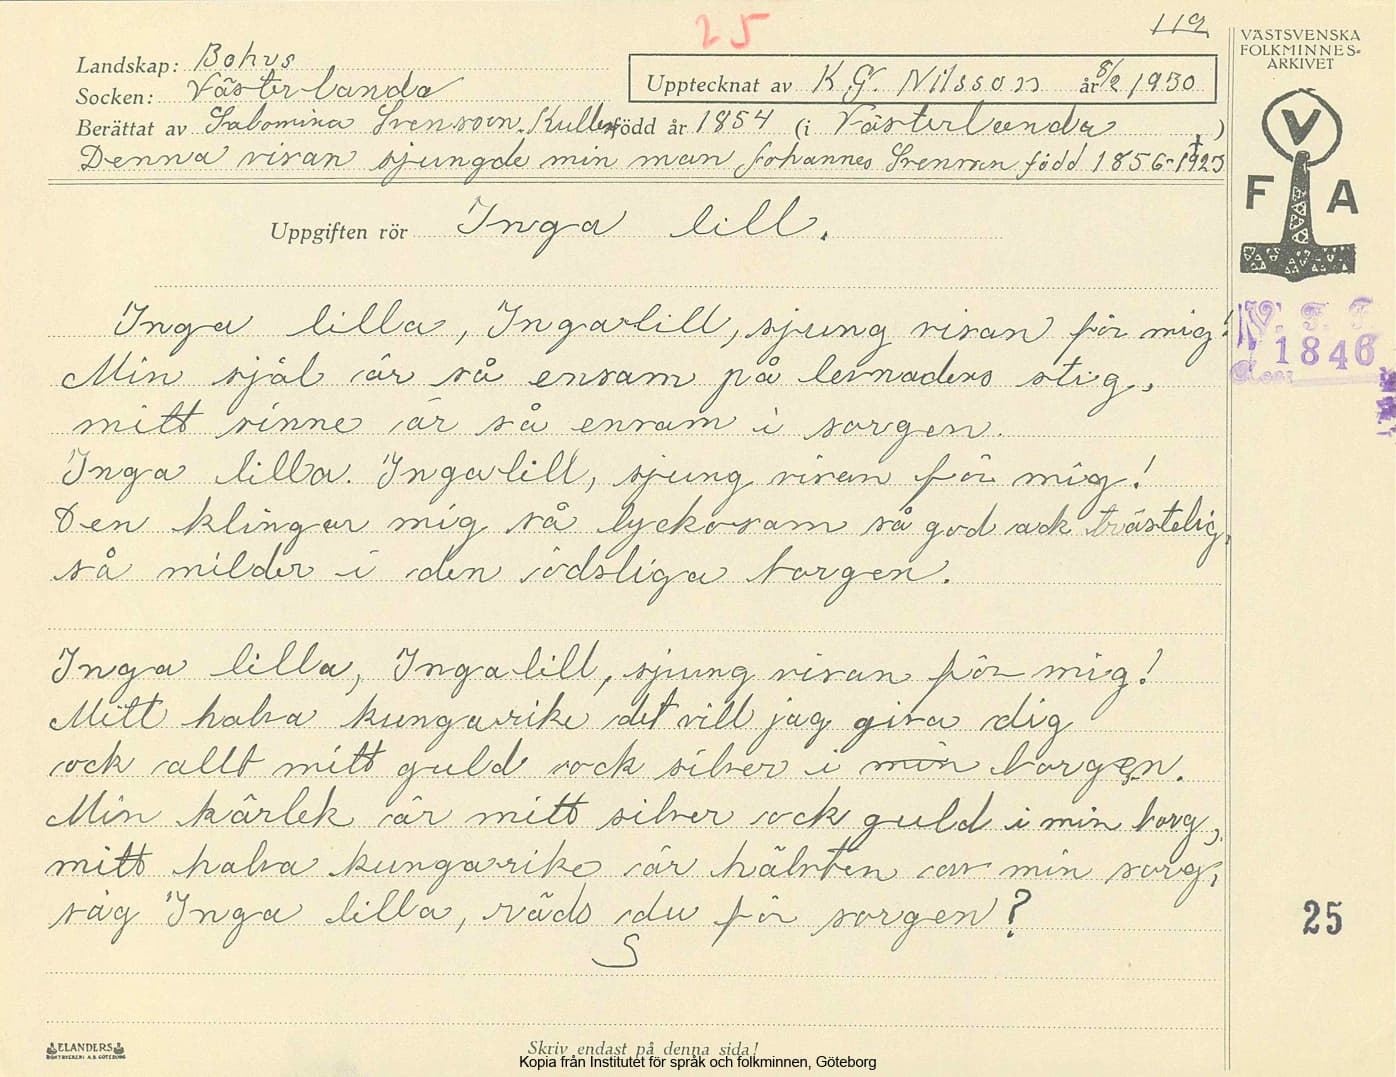 25
119
VÄSTSVENSKA
FOLKMINNES-
ARKIVET
Landskap: Bohus
Socken: Västerlanda
Upptecknat av K G. Nilsson år 8/2 1930
Berättat av Salomina Svensson. Kullen född år 1854 (i Västerlanda )
Denna visan sjungde min man Johannes Svensson född 1856-†1923
V
F A
Uppgiften rör Inga lill.
V. F. F.
1846
Inga lilla, Ingalill, sjung visan för mig!
Min själ är så ensam på levnadens stig,
mitt sinne är så ensam i sorgen.
Inga lilla. Ingalill, sjung visan för mig!
Den klingar mig så lyckosam så god ack tröstelig,
så milder i den ödsliga borgen.
Inga lilla, Ingalill, sjung visan för mig!
Mitt halva kungarike det vill jag giva dig
ock allt mitt guld ock silver i min borgen.
Min kärlek är mitt silver ock guld i min borg,
mitt halva kungarike är hälvten av min sorg,
säg Inga lilla, räds du för sorgen?
S
25
ELANDERS
BOKTRYCKERI A.B. GÖTEBORG
Skriv endast på denna sida!
Kopia från Institutet för språk och folkminnen, Göteborg